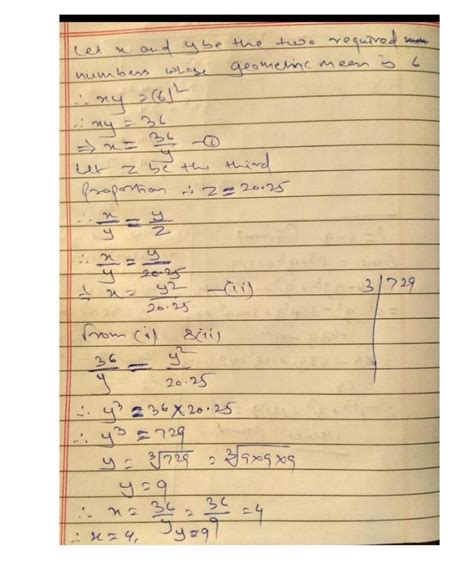 Let x and y be the two required
numbers whose geometric mean is 6
∴ xy = (6)²
∴ xy = 36
⇒ x = 36/y —①
Let z be the third
proportion ∴ z = 20.25
∴ x/y = y/z
∴ x/y = y/20.25
⇒ x = y²/20.25 —(ii)
3 | 729
From (i) & (ii)
36/y = y²/20.25
∴ y³ = 36 × 20.25
∴ y³ = 729
y = ∛729 = ∛9×9×9
y = 9
∴ x = 36/y = 36/9 = 4
∴ x = 4, y = 9